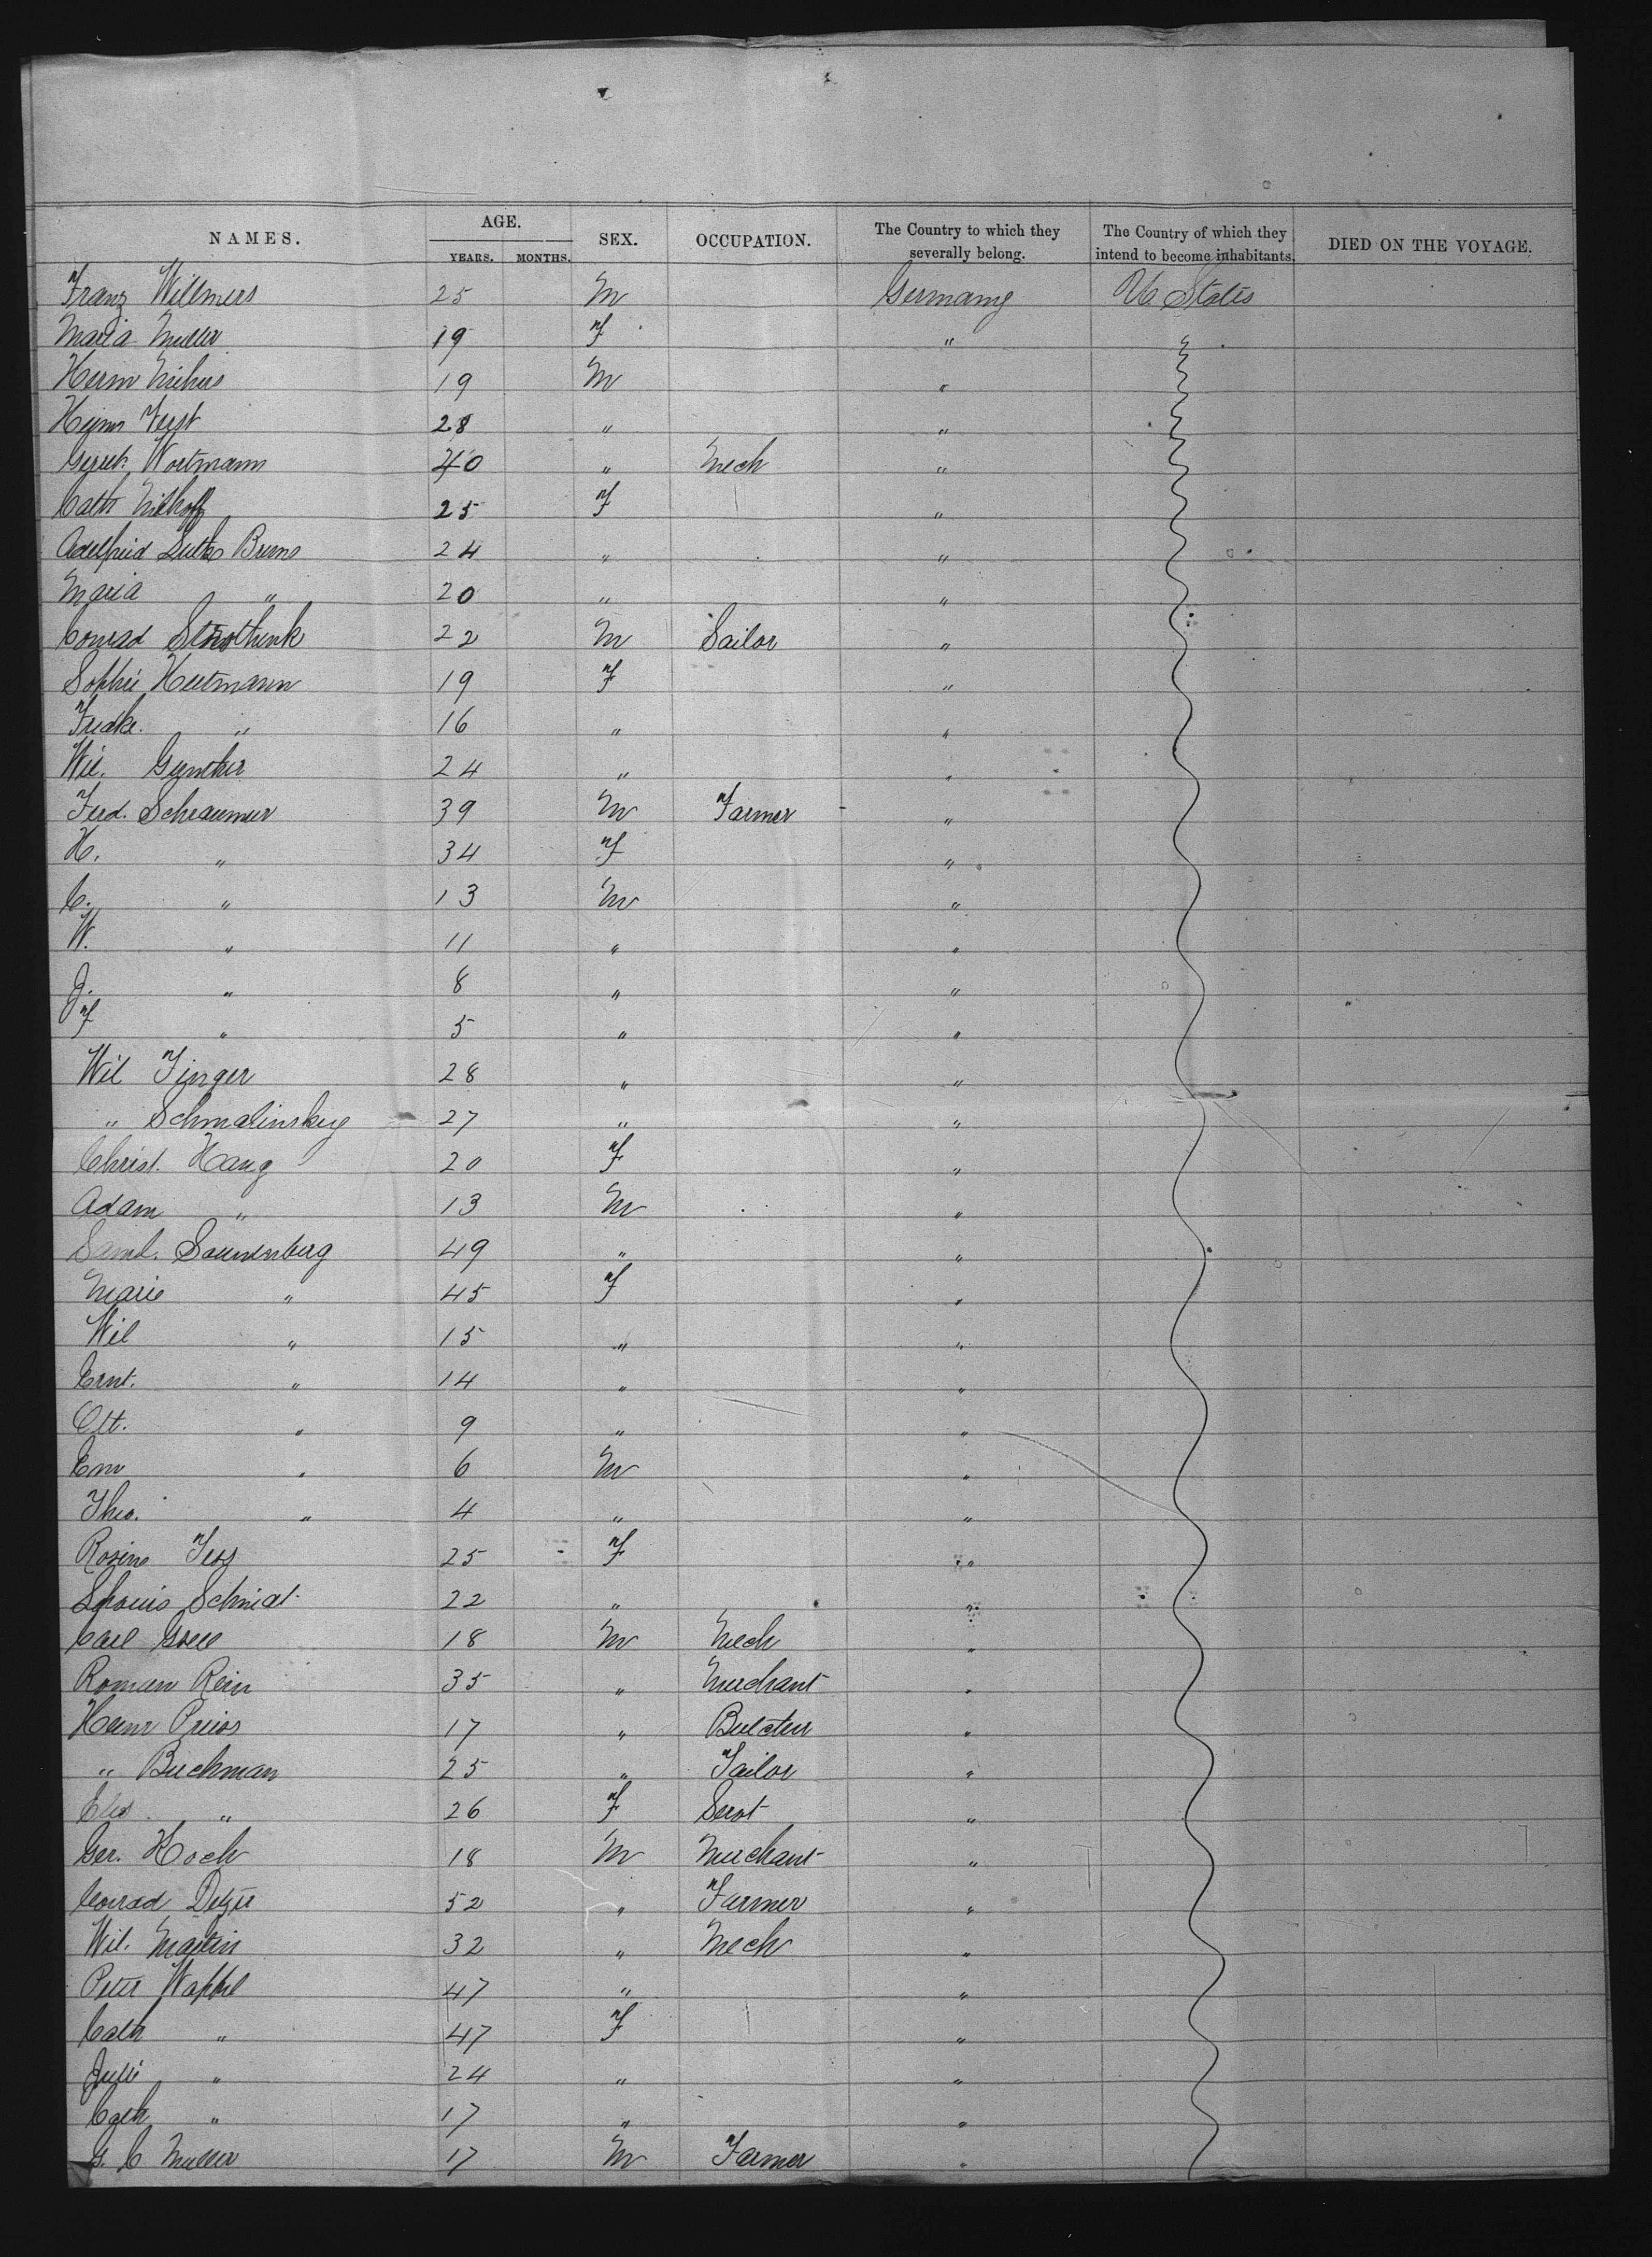 NAMES. AGE. SEX. OCCUPATION. The Country to which they severally belong. The Country of which they intend to become inhabitants. DIED ON THE VOYAGE.
YEARS. MONTHS.
Franz Willmers 25 M Germany U States
Maria Muller 19 F "
Herm 19 M "
28 " "
Wortmann 40 " Mech "
Cath 25 F "
Adelheid Bruns 24 " "
Maria " 20 " "
Conrad 22 M Sailor "
Sophie 19 F "
Fredke. " 16 " "
Wil. Gunther 24 " "
Ferd. 39 M Farmer "
H. " 34 F "
C. " 13 M "
W. " 11 " "
J. " 8 " "
F " 5 " "
Wil Finger 28 " "
" 27 " "
Christ. Haug 20 F "
Adam " 13 M "
Saml. 49 " "
Marie " 45 F "
Wil " 15 " "
Ernt. " 14 " "
Ott. " 9 " "
Em " 6 M "
Theo. " 4 " "
Rosine 25 F "
Schmidt 22 " "
Carl 18 M Mech "
Roman 35 " Merchant "
17 " "
" Buchman 25 " Tailor "
" 26 F Servt "
Ger. Koch 18 M Merchant "
Conrad 52 " Farmer "
Wil. Martin 32 " Mech "
Peter Wappel 47 " "
Cath " 47 F "
Julie " 24 " "
Cath " 17 " "
G. C Muller 17 M Farmer "